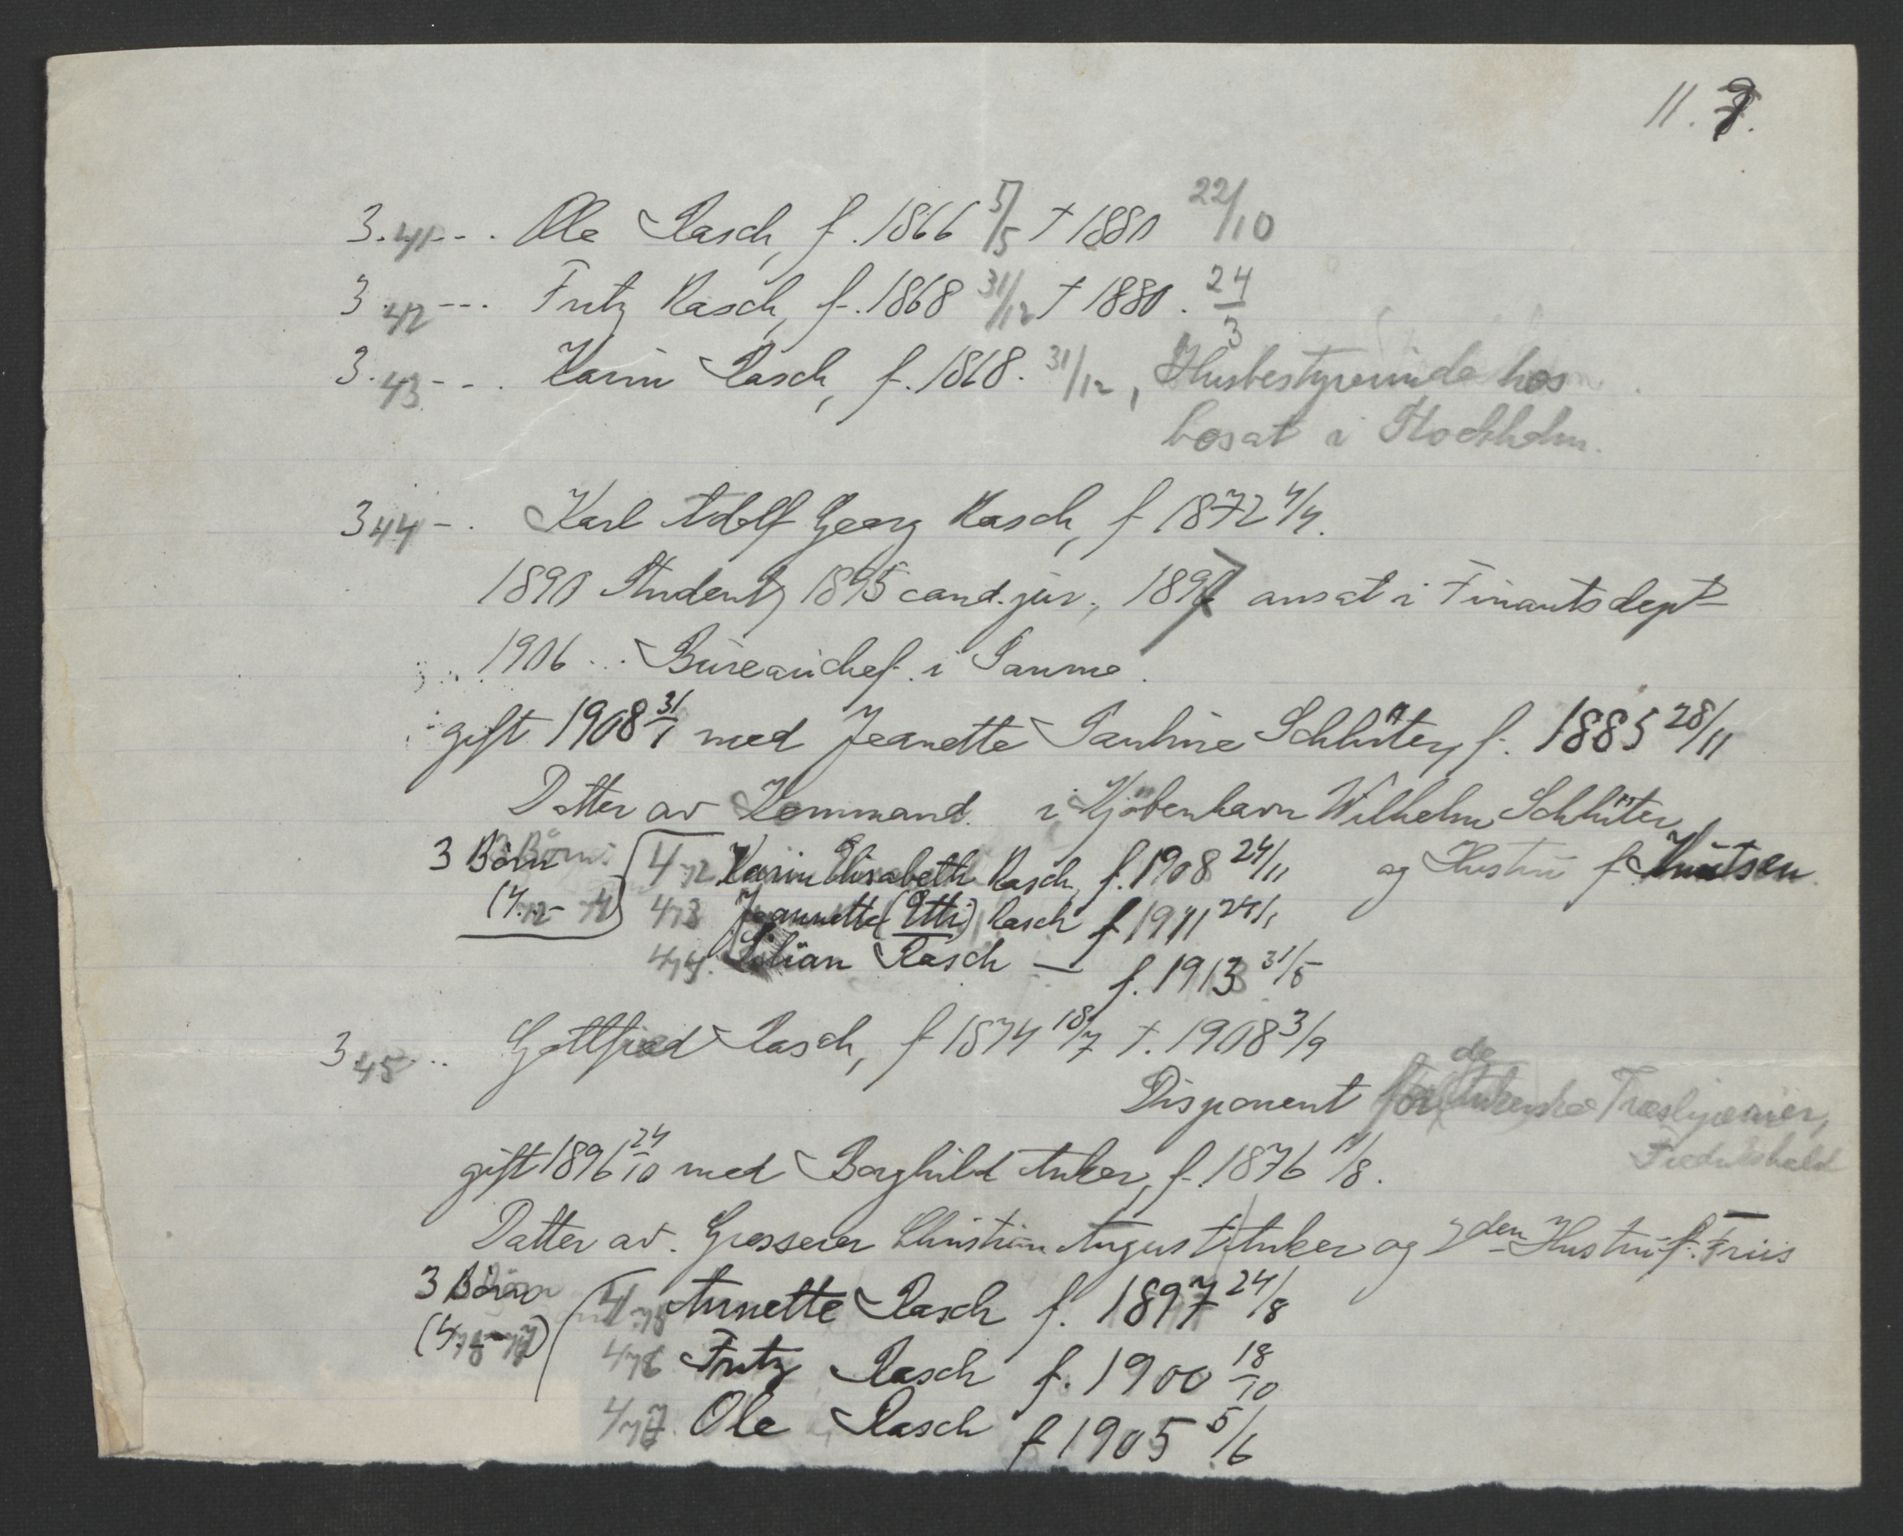 11. 9.
3.41 - - . Ole Rasch, f. 1866 5/5 † 1880 22/10
3 42 - - - Fritz Rasch, f. 1868 31/12 † 1880. 24/3
3.43 - - . Karin Rasch, f. 1868. 31/12, Husbestyrerinde hos
bosat i Stockholm.
3 44 - . Karl Adolf Georg Rasch, f 1872 4/4.
1890 Student, 1895 cand. jur., 1897 ansat i Finantsdept
1906 ... Bureauchef i Samme.
gift 1908 31/1 med Jeanette Pauline Schlüter, f. 1885 28/11
Datter av Kommand. i Kjöbenhavn Wilhelm Schlüter
og Hustru f. Knutsen.
3 Börn 4 72 Karin Elisabeth Rasch, f. 1908 24/11
(4.72 - 74) 473 Jeannette (Etti) Rasch f 1911 24/1
474. Lilian Rasch — f. 1913 31/5
3 45 . . Gottfried Rasch, f 1874 18/7 †. 1908 3/9
Disponent for de Ankerske Træsliperier,
Fredrikshald
gift 1896 24/10 med Borghild Anker, f. 1876 11/8.
Datter av. Grosserer Christian August Anker og 2den Hustru f. Friis
3 Börn 4 75 Annette Rasch f. 1897 24/8
(4 75 - 77) 476 Fritz Rasch f. 1900 18/10
477. Ole Rasch f 1905 5/6